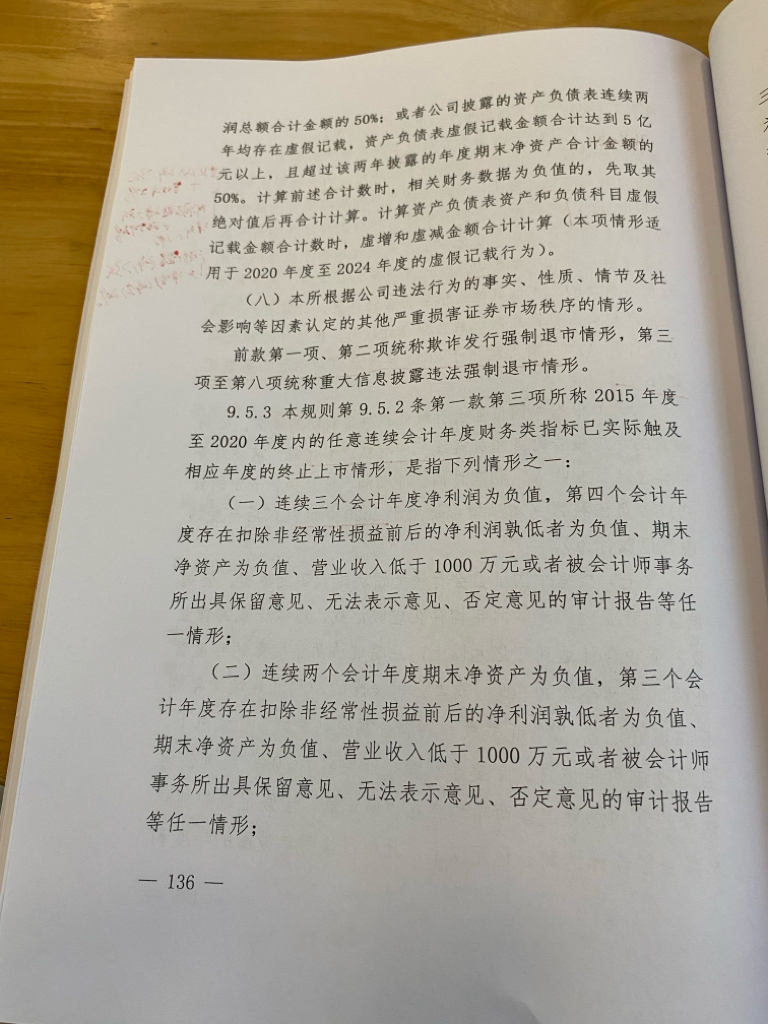 润总额合计金额的 50%；或者公司披露的资产负债表连续两
年均存在虚假记载，资产负债表虚假记载金额合计达到 5 亿
元以上，且超过该两年披露的年度期末净资产合计金额的
50%。计算前述合计数时，相关财务数据为负值的，先取其
绝对值后再合计计算。计算资产负债表资产和负债科目虚假
记载金额合计数时，虚增和虚减金额合计计算（本项情形适
用于 2020 年度至 2024 年度的虚假记载行为）。
（八）本所根据公司违法行为的事实、性质、情节及社
会影响等因素认定的其他严重损害证券市场秩序的情形。
前款第一项、第二项统称欺诈发行强制退市情形，第三
项至第八项统称重大信息披露违法强制退市情形。
9.5.3 本规则第 9.5.2 条第一款第三项所称 2015 年度
至 2020 年度内的任意连续会计年度财务类指标已实际触及
相应年度的终止上市情形，是指下列情形之一：
（一）连续三个会计年度净利润为负值，第四个会计年
度存在扣除非经常性损益前后的净利润孰低者为负值、期末
净资产为负值、营业收入低于 1000 万元或者被会计师事务
所出具保留意见、无法表示意见、否定意见的审计报告等任
一情形；
（二）连续两个会计年度期末净资产为负值，第三个会
计年度存在扣除非经常性损益前后的净利润孰低者为负值、
期末净资产为负值、营业收入低于 1000 万元或者被会计师
事务所出具保留意见、无法表示意见、否定意见的审计报告
等任一情形；
— 136 —